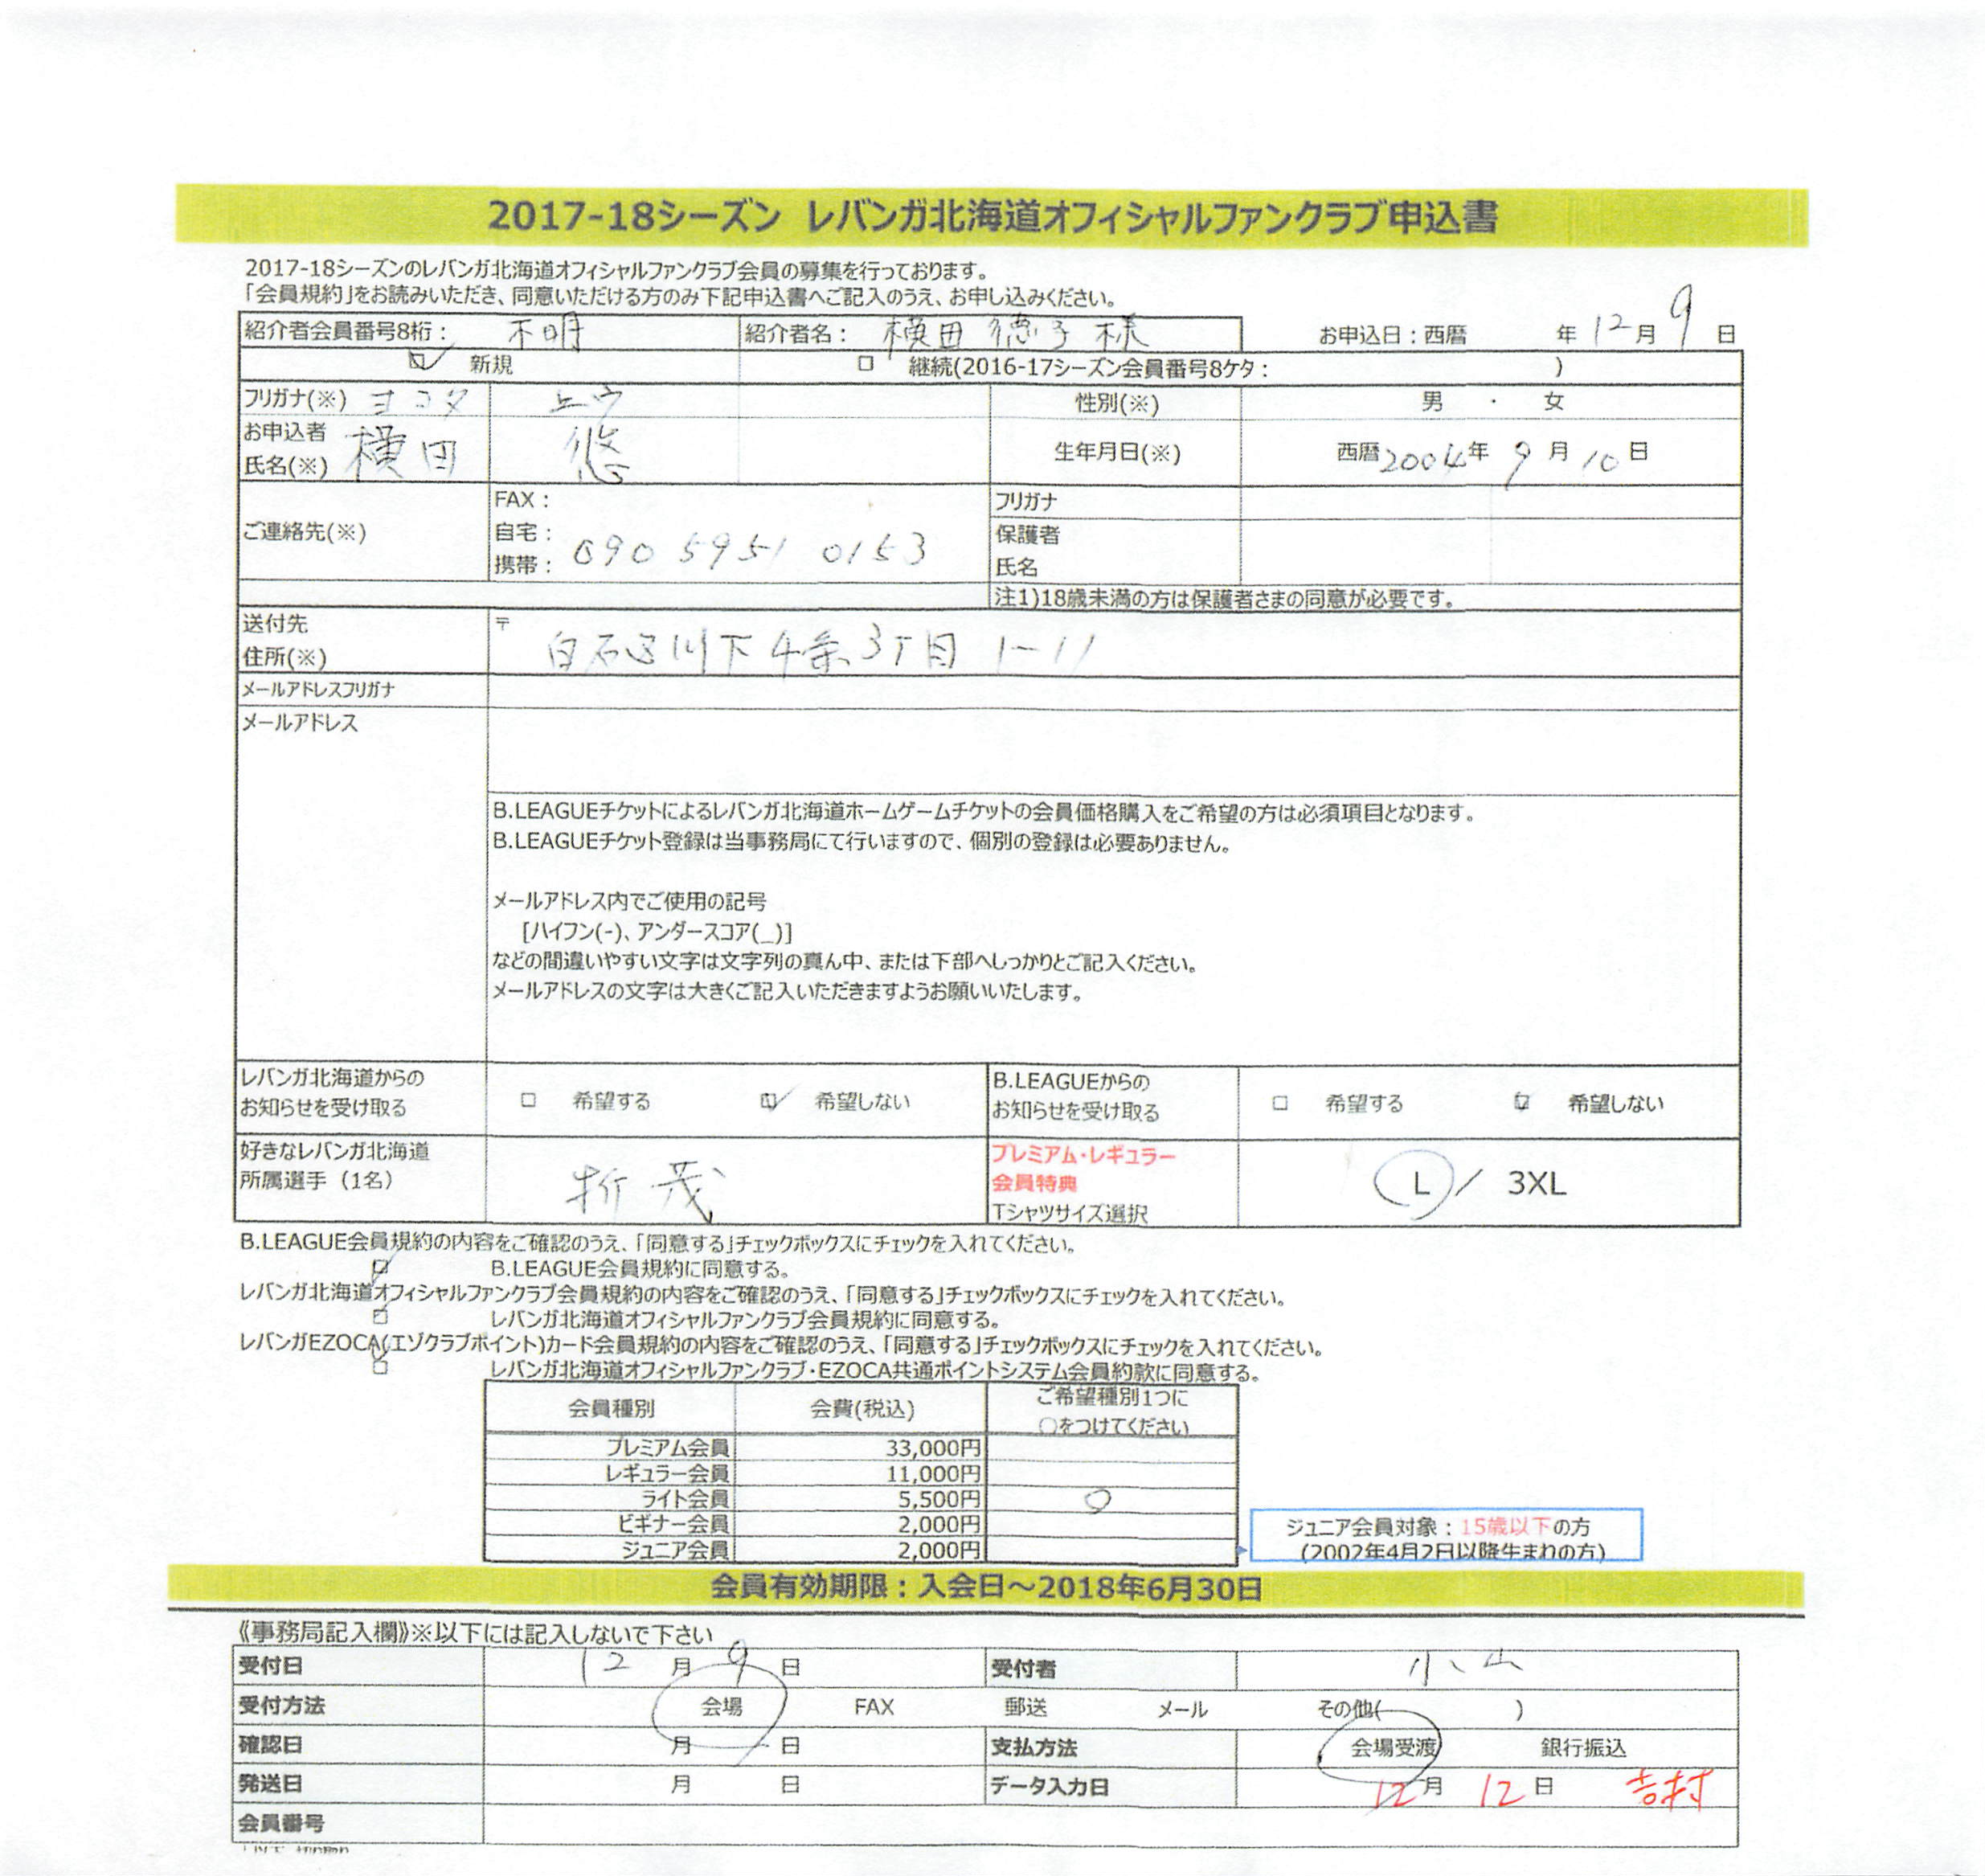 2017-18シーズン レバンガ北海道オフィシャルファンクラブ申込書
2017-18シーズンのレバンガ北海道オフィシャルファンクラブ会員の募集を行っております。
「会員規約」をお読みいただき、同意いただける方のみ下記申込書へご記入のうえ、お申し込みください。
紹介者会員番号8桁： 不明 紹介者名： 横田 徳子 様 お申込日：西暦 年 12月 9 日
☑ 新規 □ 継続(2016-17シーズン会員番号8ケタ： )
フリガナ(※) ヨコタ ユウ 性別(※) 男 ・ 女
お申込者
氏名(※) 横田 悠 生年月日(※) 西暦 2004年 9月 10日
ご連絡先(※) FAX： フリガナ
自宅： 保護者
携帯： 090 5951 0153 氏名
注1)18歳未満の方は保護者さまの同意が必要です。
送付先 〒
住所(※) 白石区川下4条3丁目 1-11
メールアドレスフリガナ
メールアドレス
B.LEAGUEチケットによるレバンガ北海道ホームゲームチケットの会員価格購入をご希望の方は必須項目となります。
B.LEAGUEチケット登録は当事務局にて行いますので、個別の登録は必要ありません。
メールアドレス内でご使用の記号
[ハイフン(-)、アンダースコア(_)]
などの間違いやすい文字は文字列の真ん中、または下部へしっかりとご記入ください。
メールアドレスの文字は大きくご記入いただきますようお願いいたします。
レバンガ北海道からの
お知らせを受け取る □ 希望する ☑ 希望しない B.LEAGUEからの
お知らせを受け取る □ 希望する ☑ 希望しない
好きなレバンガ北海道
所属選手（1名） 折茂 プレミアム・レギュラー
会員特典
Tシャツサイズ選択 L / 3XL
B.LEAGUE会員規約の内容をご確認のうえ、「同意する」チェックボックスにチェックを入れてください。
☑ B.LEAGUE会員規約に同意する。
レバンガ北海道オフィシャルファンクラブ会員規約の内容をご確認のうえ、「同意する」チェックボックスにチェックを入れてください。
☑ レバンガ北海道オフィシャルファンクラブ会員規約に同意する。
レバンガEZOCA(エゾクラブポイント)カード会員規約の内容をご確認のうえ、「同意する」チェックボックスにチェックを入れてください。
☑ レバンガ北海道オフィシャルファンクラブ・EZOCA共通ポイントシステム会員約款に同意する。
会員種別 会費(税込) ご希望種別1つに
○をつけてください
プレミアム会員 33,000円
レギュラー会員 11,000円
ライト会員 5,500円 ○
ビギナー会員 2,000円
ジュニア会員 2,000円
ジュニア会員対象：15歳以下の方
(2002年4月2日以降生まれの方)
会員有効期限：入会日～2018年6月30日
《事務局記入欄》※以下には記入しないで下さい
受付日 12 月 9 日 受付者 小山
受付方法 会場 FAX 郵送 メール その他( )
確認日 月 日 支払方法 会場受渡 銀行振込
発送日 月 日 データ入力日 12月 12日 吉村
会員番号